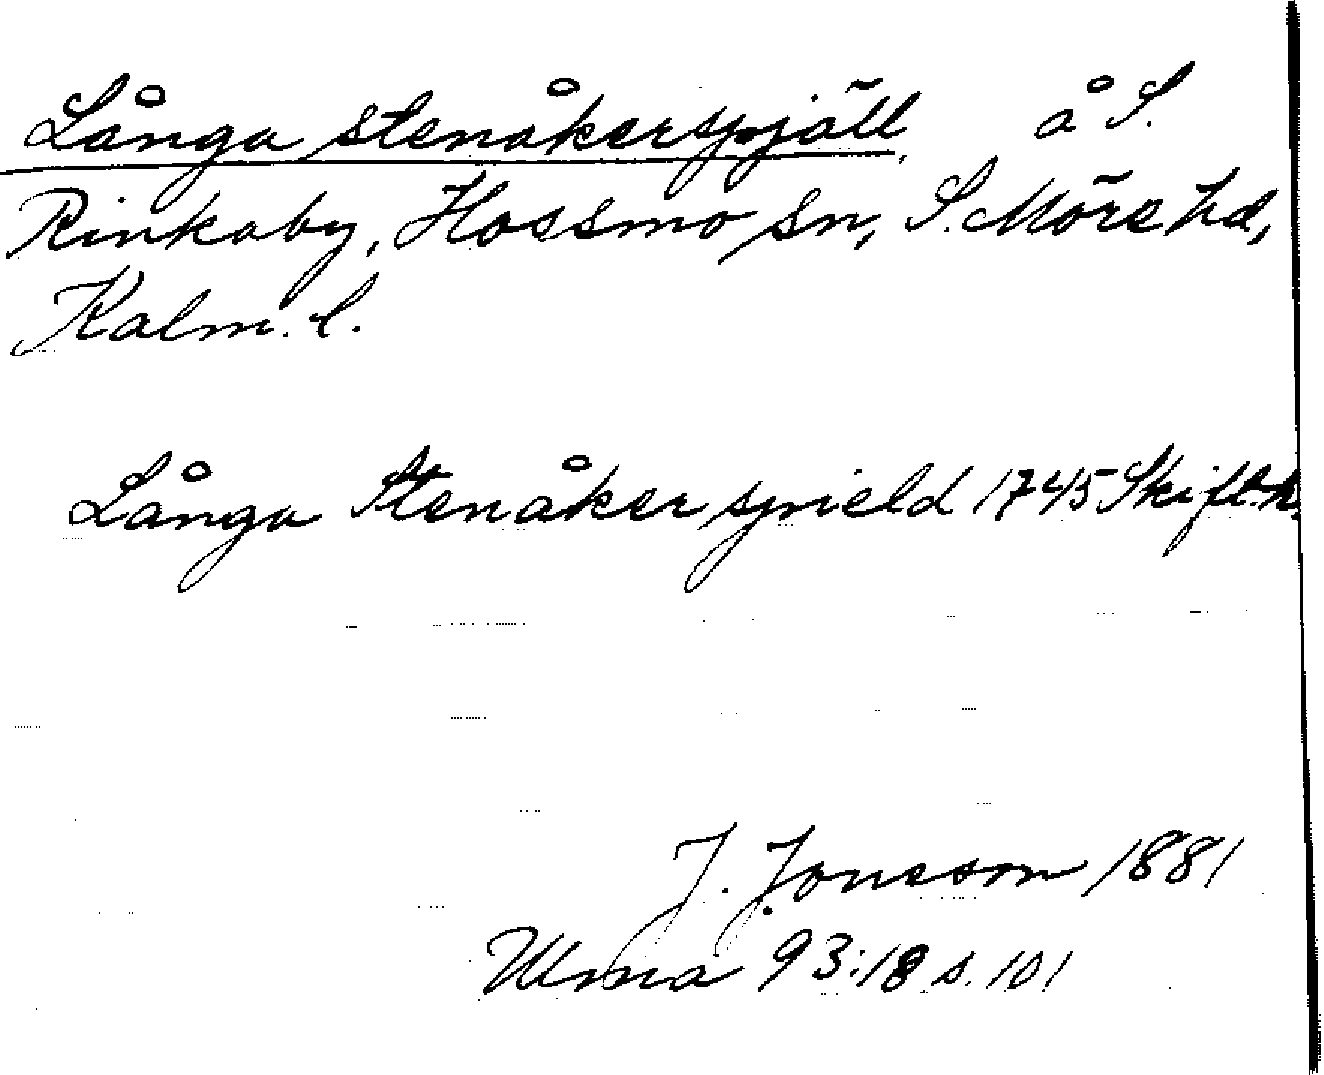 Långa stenåkerspjäll, å S.
Rinkaby, Hossmo sn, S. Möre hd,
Kalm. l.
Långa Stenåker spield 1745 Skift.h.
J. Jonsson 1881
Ulma 93:18 s. 101